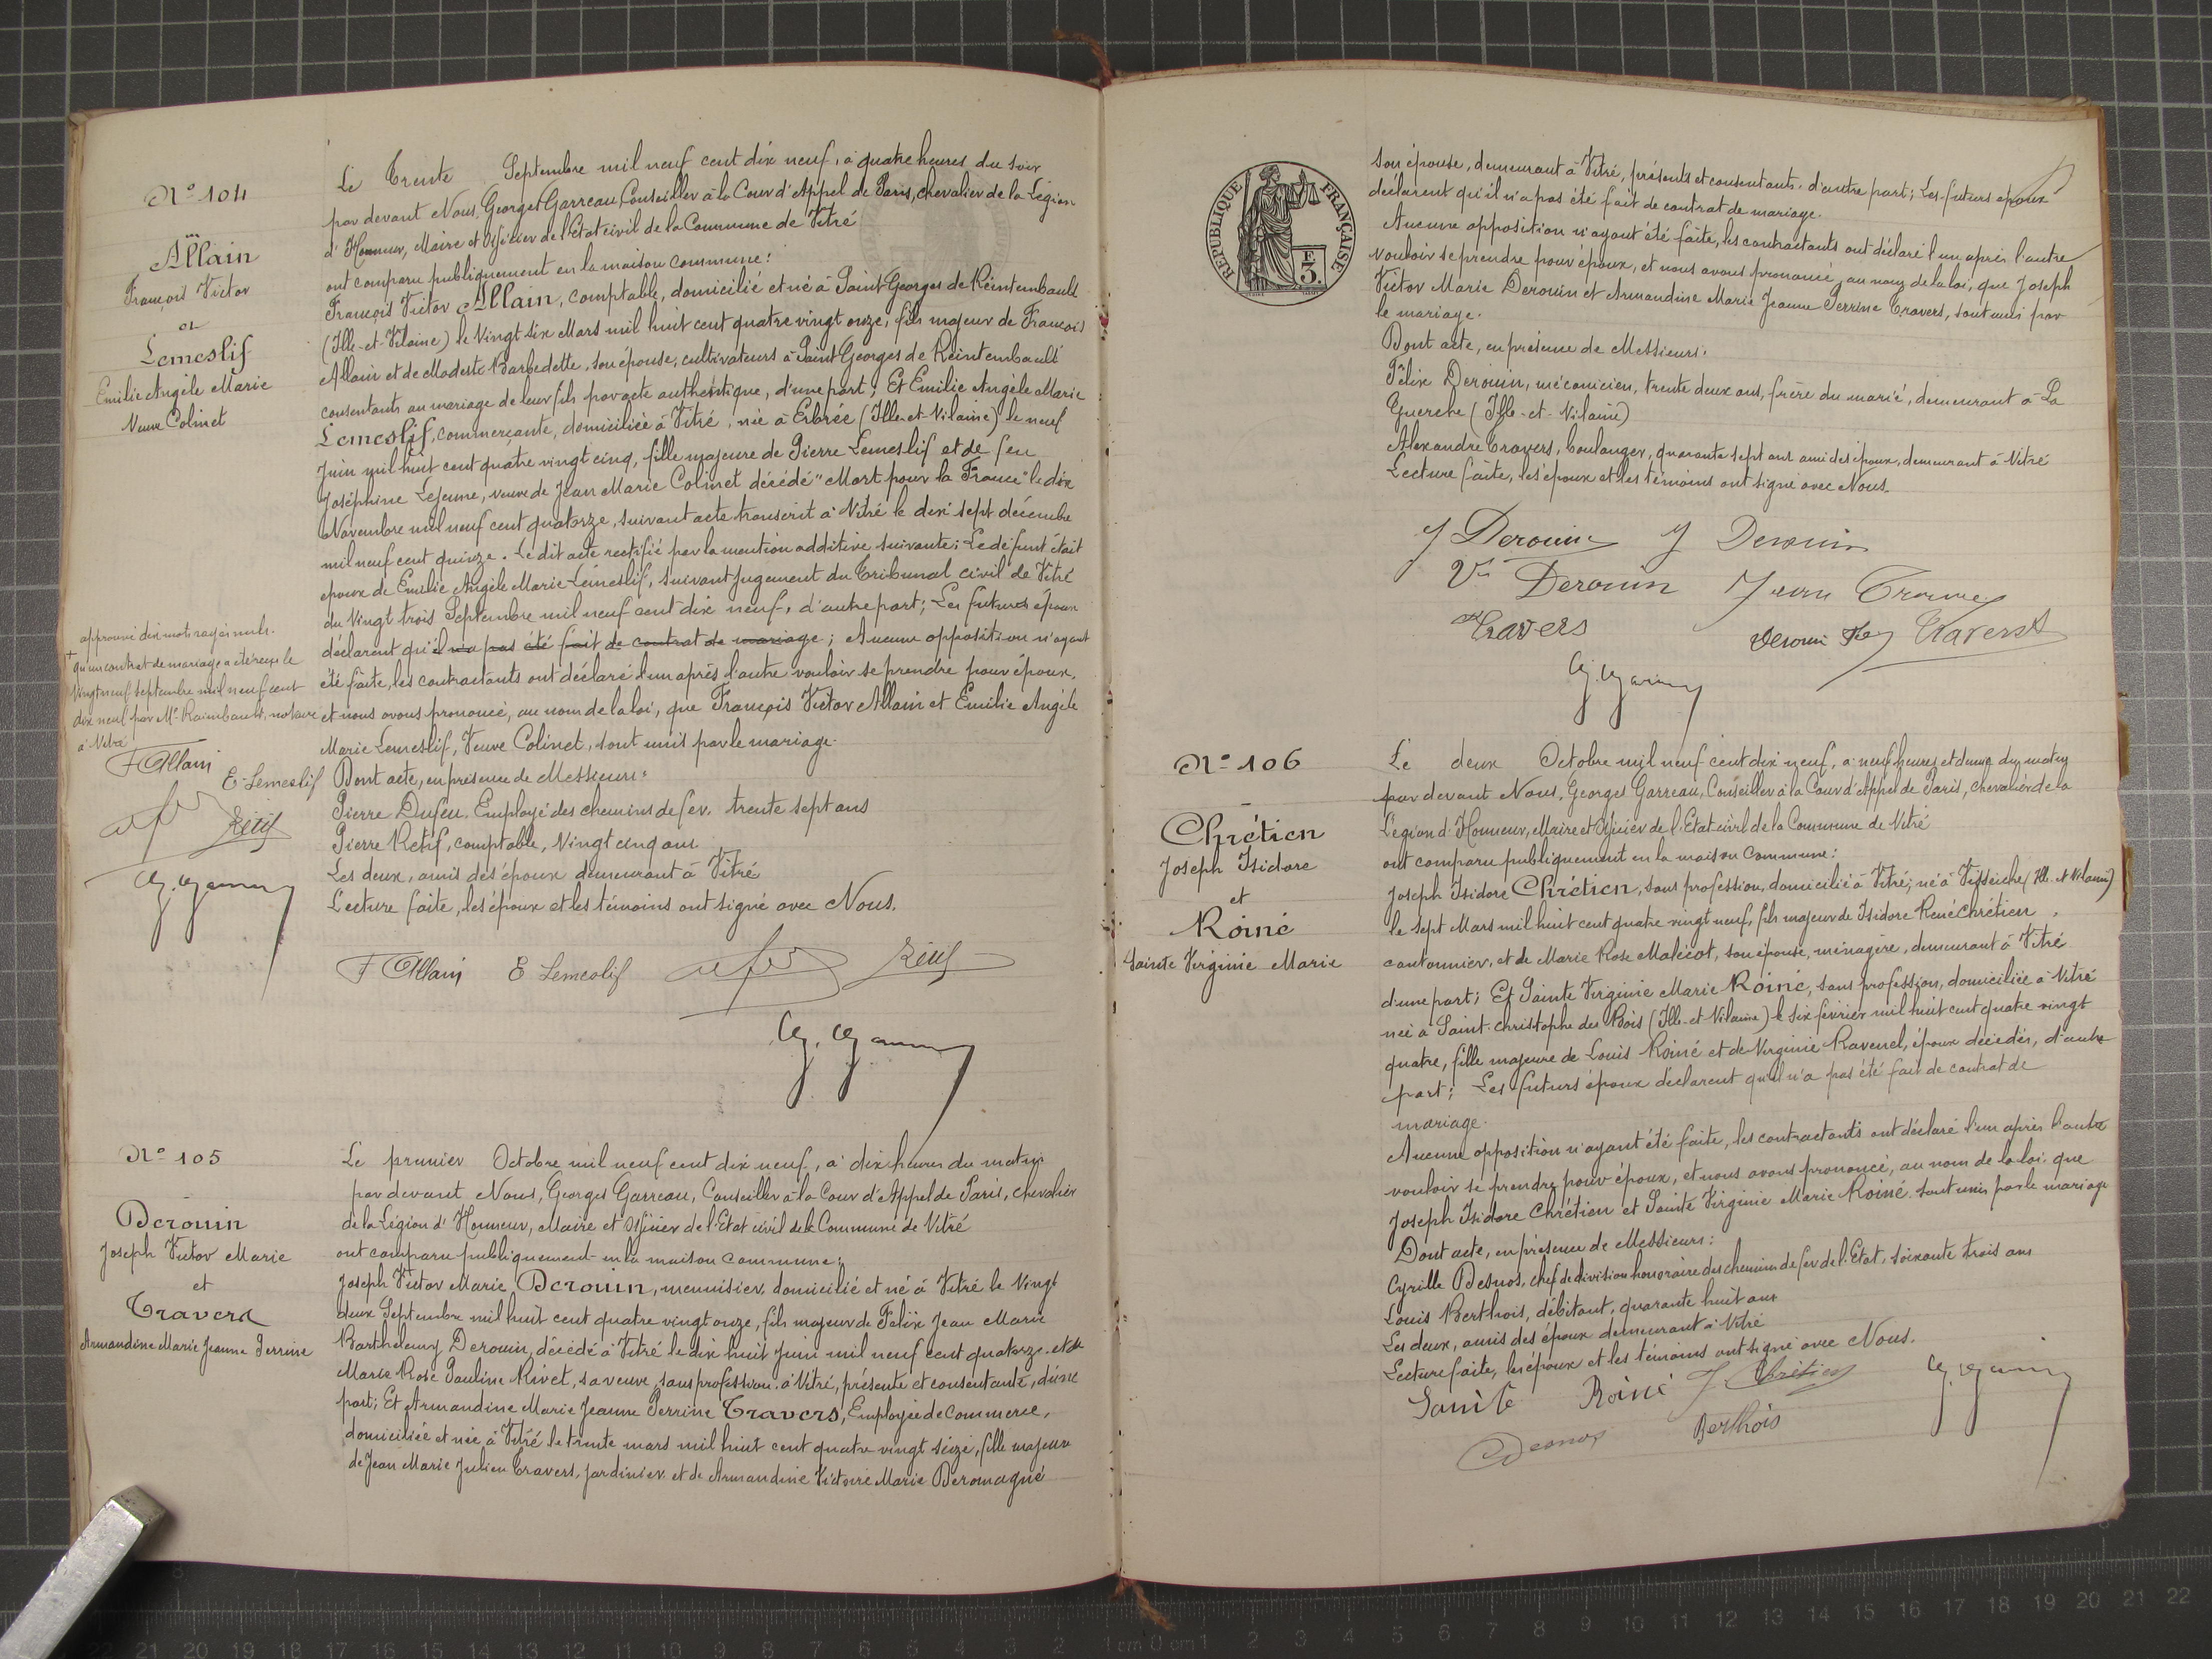 N° 104
Allain
François Victor
et
Lemeslif
Emilie Angèle Marie
Veuve Colinet
Le Trente Septembre mil neuf cent dix neuf, à quatre heures du soir
par devant Nous, Georges Garreau, Conseiller à la Cour d'Appel de Paris, chevalier de la Légion
d'Honneur, Maire et Officier de l'Etat civil de la Commune de Vitré
ont comparu publiquement en la maison commune :
François Victor Allain, comptable, domicilié et né à Saint Georges de Reintembault
(Ille-et-Vilaine) le Vingt six Mars mil huit cent quatre vingt onze, fils majeur de François
Allain et de Modeste Barbedette, son épouse, cultivateurs à Saint Georges de Reintembault
consentants au mariage de leur fils par acte authentique, d'une part ; Et Emilie Angèle Marie
Lemeslif, commerçante, domiciliée à Vitré, née à Erbrée (Ille-et-Vilaine) le neuf
Juin mil huit cent quatre vingt cinq, fille majeure de Pierre Lemeslif et de feu
Joséphine Lejeune, veuve de Jean Marie Colinet décédé "Mort pour la France" le dix
Novembre mil neuf cent quatorze, suivant acte transcrit à Vitré le dix sept décembre
mil neuf cent quinze. Le dit acte rectifié par la mention additive suivante : Le défunt était
époux de Emilie Angèle Marie Lemeslif, suivant Jugement du Tribunal civil de Vitré
du Vingt trois Septembre mil neuf cent dix neuf, d'autre part ; Les futurs époux
déclarent qu'il n'a pas été fait de contrat de mariage ; Aucune opposition n'ayant
été faite, les contractants ont déclaré l'un après l'autre vouloir se prendre pour époux,
et nous avons prononcé, au nom de la loi, que François Victor Allain et Emilie Angèle
Marie Lemeslif, Veuve Colinet, sont unis par le mariage.
Dont acte, en présence de Messieurs :
Pierre Dufeu, Employé des chemins de fer, trente sept ans
Pierre Retif, comptable, Vingt cinq ans
Les deux, amis des époux demeurant à Vitré
Lecture faite, les époux et les témoins ont signé avec Nous.
approuvé dix mots rayés nuls.
+ qu'un contrat de mariage a été reçu le
Vingt neuf septembre mil neuf cent
dix neuf par Me Raimbault, notaire
à Vitré
F Allain
E. Lemeslif
Retif
G. Garreau
F Allain E Lemeslif Retif
G. Garreau
N° 105
Derouin
Joseph Victor Marie
et
Travers
Armandine Marie Jeanne Perrine
Le premier Octobre mil neuf cent dix neuf, à dix heures du matin
par devant Nous, Georges Garreau, Conseiller à la Cour d'Appel de Paris, chevalier
de la Légion d'Honneur, Maire et Officier de l'Etat civil de la Commune de Vitré
ont comparu publiquement en la maison commune :
Joseph Victor Marie Derouin, menuisier, domicilié et né à Vitré le Vingt
deux Septembre mil huit cent quatre vingt onze, fils majeur de Félix Jean Marie
Barthélemy Derouin, décédé à Vitré le dix huit Juin mil neuf cent quatorze et de
Marie Rose Pauline Rivet, sa veuve, sans profession à Vitré, présente et consentante, d'une
part ; Et Armandine Marie Jeanne Perrine Travers, Employée de commerce,
domiciliée et née à Vitré le trente mars mil huit cent quatre vingt seize, fille majeure
de Jean Marie Julien Travers, jardinier et de Armandine Victoire Marie Deromagné
RÉPUBLIQUE FRANÇAISE
F
3
son épouse, demeurant à Vitré, présents et consentants, d'autre part ; Les futurs époux
déclarent qu'il n'a pas été fait de contrat de mariage.
Aucune opposition n'ayant été faite, les contractants ont déclaré l'un après l'autre
vouloir se prendre pour époux, et nous avons prononcé, au nom de la loi, que Joseph
Victor Marie Derouin et Armandine Marie Jeanne Perrine Travers, sont unis par
le mariage.
Dont acte, en présence de Messieurs :
Félix Derouin, mécanicien, trente deux ans, frère du marié, demeurant à La
Guerche (Ille-et-Vilaine)
Alexandre Travers, boulanger, quarante sept ans ami des époux, demeurant à Vitré
Lecture faite, les époux et les témoins ont signé avec Nous.
J Derouin J Derouin
Ve Derouin Jean Travers
Travers Derouin Travers
G. Garreau
N° 106
Chrétien
Joseph Isidore
et
Roiné
Sainte Virginie Marie
Le deux Octobre mil neuf cent dix neuf, à neuf heures et demie du matin
par devant Nous, Georges Garreau, Conseiller à la Cour d'Appel de Paris, chevalier de la
Légion d'Honneur, Maire et Officier de l'Etat civil de la Commune de Vitré
ont comparu publiquement en la maison commune :
Joseph Isidore Chrétien, sans profession, domicilié à Vitré, né à Visseiche (Ille-et-Vilaine)
le sept Mars mil huit cent quatre vingt neuf, fils majeur de Isidore René Chrétien,
cantonnier, et de Marie Rose Malécot, son épouse, ménagère, demeurant à Vitré
d'une part ; Et Sainte Virginie Marie Roiné, sans profession, domiciliée à Vitré
née à Saint Christophe des Bois (Ille-et-Vilaine) le six février mil huit cent quatre vingt
quatre, fille majeure de Louis Roiné et de Virginie Ravenel, époux décédés, d'autre
part ; Les futurs époux déclarent qu'il n'a pas été fait de contrat de
mariage.
Aucune opposition n'ayant été faite, les contractants ont déclaré l'un après l'autre
vouloir se prendre pour époux, et nous avons prononcé, au nom de la loi que
Joseph Isidore Chrétien et Sainte Virginie Marie Roiné sont unis par le mariage
Dont acte, en présence de Messieurs :
Cyrille Desnos, chef de division honoraire des chemins de fer de l'Etat, soixante trois ans
Louis Berthois, débitant, quarante huit ans
Les deux, amis des époux demeurant à Vitré
Lecture faite, les époux et les témoins ont signé avec Nous.
Sainte Roiné J. Chrétien G. Garreau
CDesnos Berthois